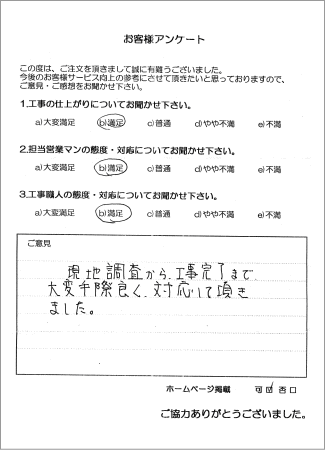 お客様アンケート
この度は、ご注文を頂きまして誠に有難うございました。
今後のお客様サービス向上の参考にさせて頂きたいと思っておりますので、
ご意見・ご感想をお聞かせ下さい。
1.工事の仕上がりについてお聞かせ下さい。
a)大変満足 b)満足 c)普通 d)やや不満 e)不満
2.担当営業マンの態度・対応についてお聞かせ下さい。
a)大変満足 b)満足 c)普通 d)やや不満 e)不満
3.工事職人の態度・対応についてお聞かせ下さい。
a)大変満足 b)満足 c)普通 d)やや不満 e)不満
ご意見
現地調査から、工事完了まで、
大変手際良く、対応して頂き
ました。
ホームページ掲載 可 否
ご協力ありがとうございました。